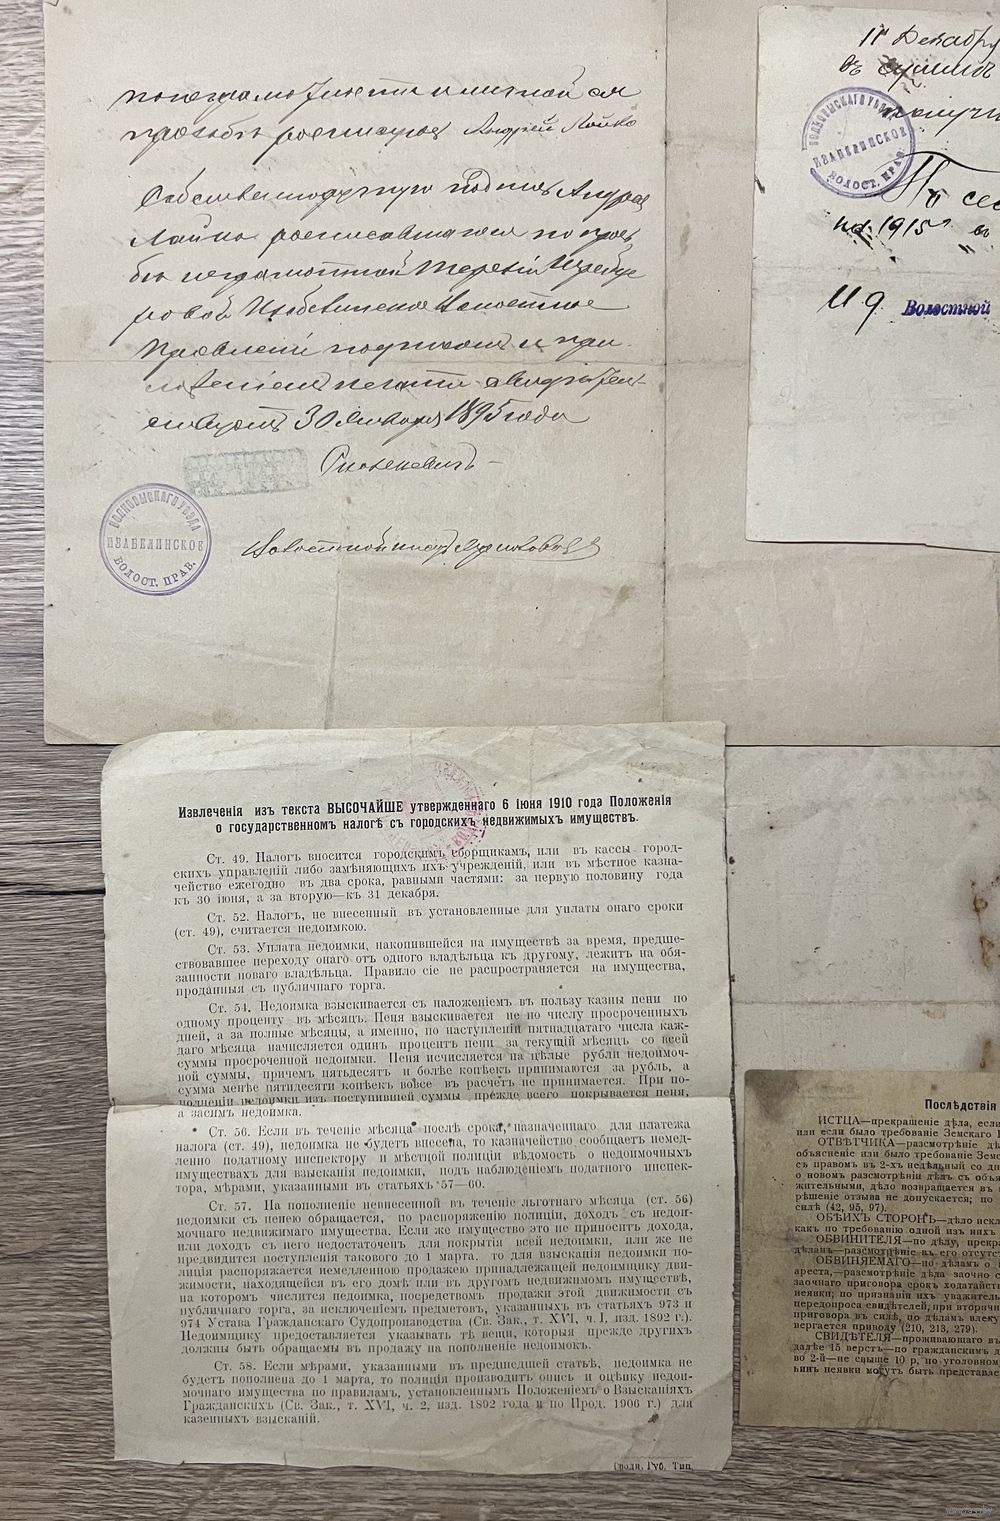 просьбѣ росписался Андрей Лойко
Собственноручную подпись Андрея
Лойко росписавшагося по прось
бѣ неграмотной
Правленіе подписомъ и при
ложеніемъ печати
30 Января 1895 года
ВОЛКОВЫСКАГО УѢЗДА
ИЗАБЕЛИНСКОЕ
ВОЛОСТ. ПРАВ.
11 Декабря
въ
получи
ВОЛКОВЫСКАГО УѢЗДА
ИЗАБЕЛИНСКОЕ
ВОЛОСТ. ПРАВ.
1915
И д. Волостной
Извлеченія изъ текста ВЫСОЧАЙШЕ утвержденнаго 6 іюня 1910 года Положенія
о государственномъ налогѣ съ городскихъ недвижимыхъ имуществъ.
Ст. 49. Налогъ вносится городскимъ сборщикамъ, или въ кассы город-
скихъ управленій либо замѣняющихъ ихъ учрежденій, или въ мѣстное казна-
чейство ежегодно въ два срока, равными частями: за первую половину года
къ 30 іюня, а за вторую—къ 31 декабря.
Ст. 52. Налогъ, не внесенный въ установленные для уплаты онаго сроки
(ст. 49), считается недоимкою.
Ст. 53. Уплата недоимки, накопившейся на имуществѣ за время, предше-
ствовавшее переходу онаго отъ одного владѣльца къ другому, лежитъ на обя-
занности новаго владѣльца. Правило сіе не распространяется на имущества,
проданныя съ публичнаго торга.
Ст. 54. Недоимка взыскивается съ наложеніемъ въ пользу казны пени по
одному проценту въ мѣсяцъ. Пеня взыскивается не по числу просроченныхъ
дней, а за полные мѣсяцы, а именно, по наступленіи пятнадцатаго числа каж-
даго мѣсяца начисляется одинъ процентъ пени за текущій мѣсяцъ со всей
суммы просроченной недоимки. Пеня исчисляется на цѣлые рубли недоимоч-
ной суммы, причемъ пятьдесятъ и болѣе копѣекъ принимаются за рубль, а
сумма менѣе пятидесяти копѣекъ вовсе въ расчетъ не принимается. При по-
полненіи недоимки изъ поступившей суммы прежде всего покрывается пеня,
а засимъ недоимка.
Ст. 56. Если въ теченіе мѣсяца послѣ срока, назначеннаго для платежа
налога (ст. 49), недоимка не будетъ внесена, то казначейство сообщаетъ немед-
ленно податному инспектору и мѣстной полиціи вѣдомость о недоимочныхъ
имуществахъ для взысканія недоимки, подъ наблюденіемъ податного инспек-
тора, мѣрами, указанными въ статьяхъ 57—60.
Ст. 57. На пополненіе невнесенной въ теченіе льготнаго мѣсяца (ст. 56)
недоимки съ пенею обращается, по распоряженію полиціи, доходъ съ недои-
мочнаго недвижимаго имущества. Если же имущество это не приноситъ дохода,
или доходъ съ него недостаточенъ для покрытія всей недоимки, или же не
предвидится поступленія такового до 1 марта, то для взысканія недоимки по-
лиція распоряжается немедленною продажею принадлежащей недоимщику дви-
жимости, находящейся въ его домѣ или въ другомъ недвижимомъ имуществѣ,
на которомъ числится недоимка, посредствомъ продажи этой движимости съ
публичнаго торга, за исключеніемъ предметовъ, указанныхъ въ статьяхъ 973 и
974 Устава Гражданскаго Судопроизводства (Св. Зак., т. XVI, ч. I, изд. 1892 г.).
Недоимщику предоставляется указывать тѣ вещи, которыя прежде другихъ
должны быть обращаемы въ продажу на пополненіе недоимокъ.
Ст. 58. Если мѣрами, указанными въ предшедшей статьѣ, недоимка не
будетъ пополнена до 1 марта, то полиція производитъ опись и оцѣнку недои-
мочнаго имущества по правиламъ, установленнымъ Положеніемъ о Взысканіяхъ
Гражданскихъ (Св. Зак., т. XVI, ч. 2, изд. 1892 года и по Прод. 1906 г.) для
казенныхъ взысканій.
Гродн. Губ. Тип.
Послѣдствія
ИСТЦА—прекращеніе дѣла, если
или если было требованіе Земскаго
ОТВѢТЧИКА—разсмотрѣніе дѣ
объясненіе или было требованіе Зем
съ правомъ въ 2-хъ недѣльный со дн
о новомъ разсмотрѣніи дѣлъ съ объя
жительными, дѣло возвращается въ
рѣшеніе отзыва не допускается; по
силѣ (42, 95, 97).
ОБѢИХЪ СТОРОНЪ—дѣло искл
какъ по требованію одной изъ нихъ
ОБВИНИТЕЛЯ—по дѣлу, прекра
дѣламъ—разсмотрѣніе въ его отсутс
ОБВИНЯЕМАГО—по дѣламъ о
ареста,—разсмотрѣніе дѣла заочно с
заочнаго приговора срокъ ходатайств
неявки; по признаніи ихъ уважитель
передопроса свидѣтелей, при вторичн
приговора въ силѣ, по дѣламъ влеку
вергается приводу (210, 213, 279).
СВИДѢТЕЛЯ—проживающаго въ
далѣе 15 верстъ—по гражданскимъ д
во 2-й—не свыше 10 р, по уголовном
неявки могутъ быть представле